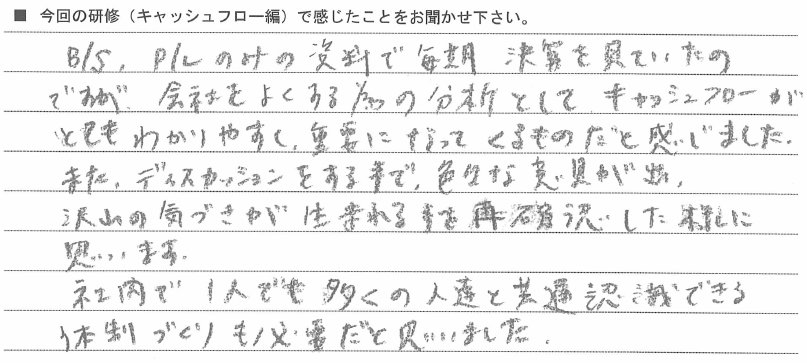 ■ 今回の研修（キャッシュフロー編）で感じたことをお聞かせ下さい。
B/S, P/Lのみの資料で毎期 決算を見ていたの
ですが、会社をよくする為の分析として、キャッシュフローが
とてもわかりやすく、重要になってくるものだと感じました。
また、ディスカッションをする事で、色々な意見が出、
沢山の気づきが生まれる事を再確認した様に
思います。
社内で1人でも多くの人達と共通認識できる
体制づくりも必要だと思いました。